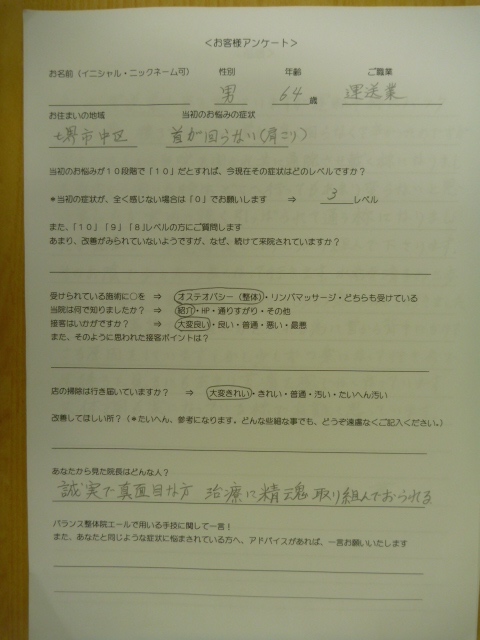 <お客様アンケート>
お名前（イニシャル・ニックネーム可） 性別 年齢 ご職業
男 64歳 運送業
お住まいの地域 当初のお悩みの症状
堺市中区 首が回らない（肩こり）
当初のお悩みが10段階で「10」だとすれば、今現在その症状はどのレベルですか？
＊当初の症状が、全く感じない場合は「0」でお願いします ⇒ 3レベル
また、「10」「9」「8」レベルの方にご質問します
あまり、改善がみられていないようですが、なぜ、続けて来院されていますか？
受けられている施術に○を ⇒ オステオパシー（整体）・リンパマッサージ・どちらも受けている
当院は何で知りましたか？ ⇒ 紹介・HP・通りすがり・その他
接客はいかがですか？ ⇒ 大変良い・良い・普通・悪い・最悪
また、そのように思われた接客ポイントは？
店の掃除は行き届いていますか？ ⇒ 大変きれい・きれい・普通・汚い・たいへん汚い
改善してほしい所？（＊たいへん、参考になります。どんな些細な事でも、どうぞ遠慮なくご記入ください。）
あなたから見た院長はどんな人？
誠実で真面目な方 治療に精魂取り組んでおられる
バランス整体院エールで用いる手技に関して一言！
また、あなたと同じような症状に悩まされている方へ、アドバイスがあれば、一言お願いいたします